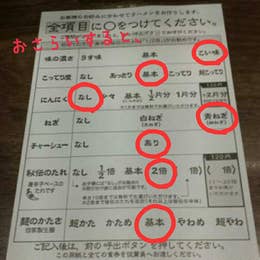 お客様のお好みに合わせてラーメンをお作りします。
全項目に○をつけてください。
おさらいすると、
味の濃さ うす味 基本 こい味
こってり度 なし あっさり 基本 こってり 超こってり
にんにく なし 少々 基本 1/2片分 1片分
ねぎ なし 白ねぎ 青ねぎ
チャーシュー なし あり
秘伝のたれ なし 1/2倍 基本 2倍 倍
麺のかたさ 超かた かため 基本 やわめ 超やわ
ご記入後は、前の呼出ボタンを押してください。